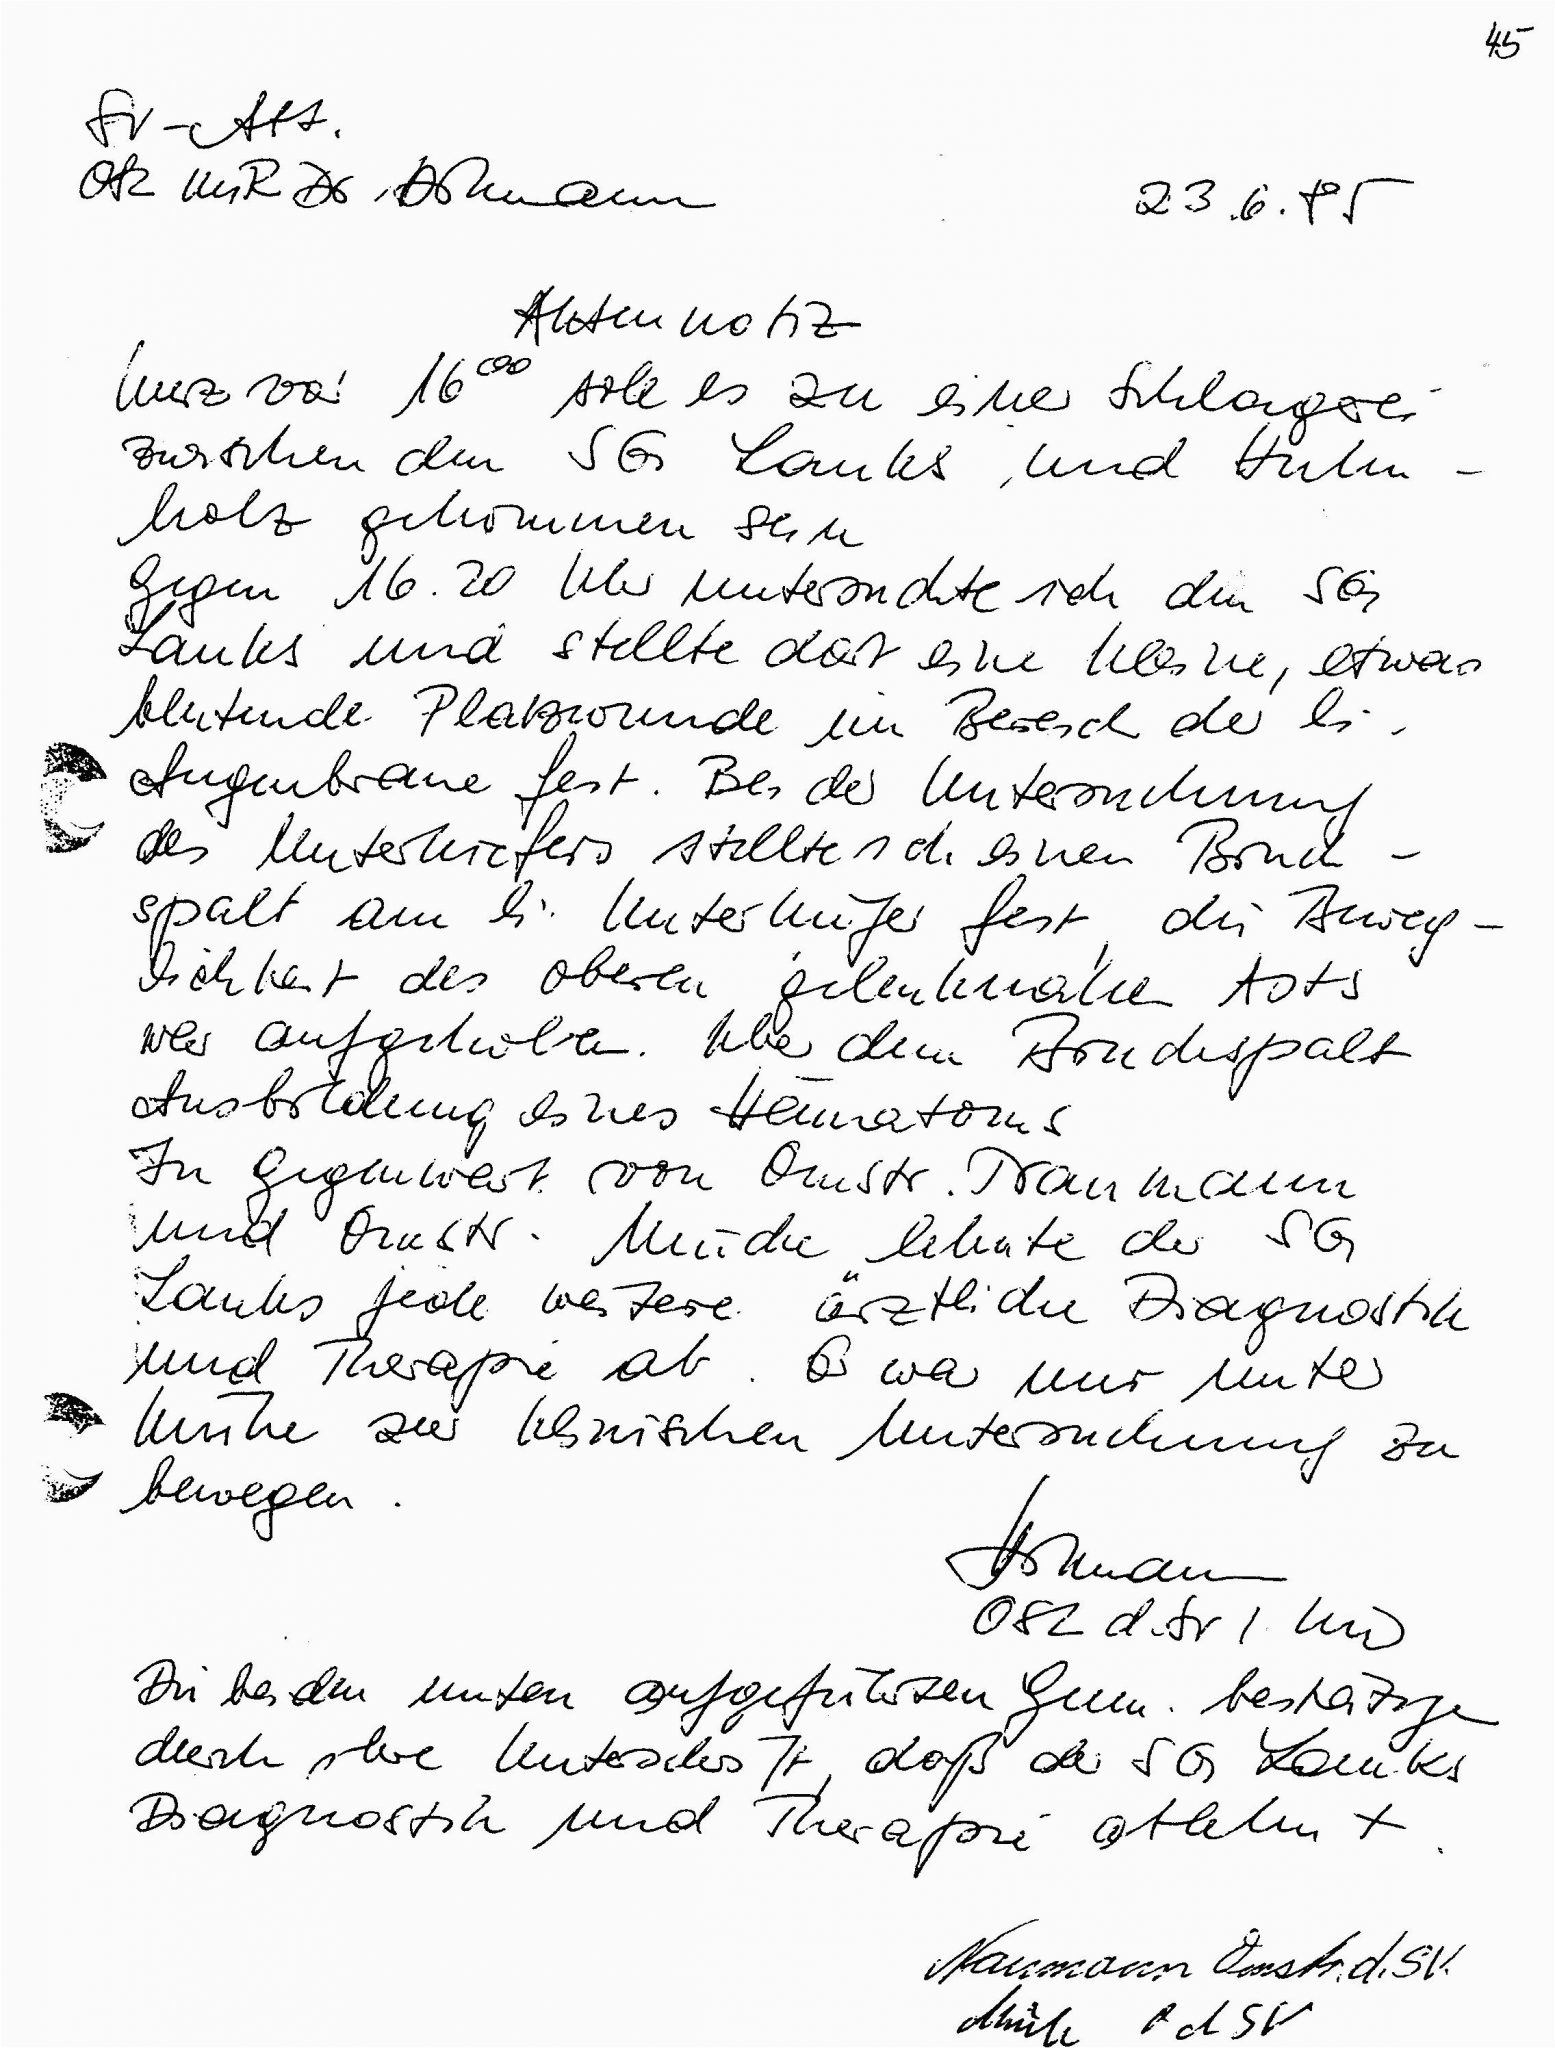 45
SV-Abt.
OSL MR Dr
23.6.85
Aktennotiz
Kurz vor 16°°° solle es zu einer Schlägerei
zwischen den SG Lauks, und Huhn-
holz gekommen sein
Gegen 16.20 Uhr untersuchte ich den SG
Lauks und stellte dort eine kleine, etwas
blutende Platzwunde im Bereich der li.
Augenbraue fest. Bei der Untersuchung
des Unterkiefers stellte ich einen Bruch-
spalt am li. Unterkiefer fest, die Beweg-
lichkeit des oberen gelenknahen Asts
war aufgehoben. Über dem Bruchspalt
Ausbildung eines Hämatoms
In Gegenwart von Omstr.
und Omstr. lehnte der SG
Lauks jede weitere ärztliche Diagnostik
und Therapie ab. Er war nur unter
Mühe zur klinischen Untersuchung zu
bewegen.
OSL d. SV
Die beiden unten aufgeführten Gen. bestätigen
durch ihre Unterschrift, daß der SG Lauks
Diagnostik und Therapie ablehnt.
Naumann Omstr. d. SV.
d SV